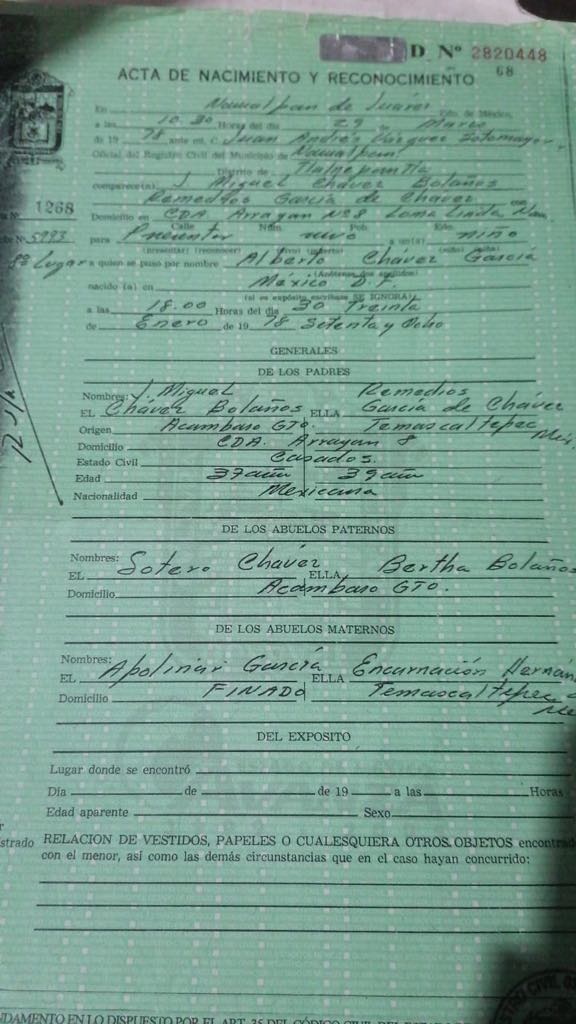 D. Nº 2820448
68
ACTA DE NACIMIENTO Y RECONOCIMIENTO
En Naucalpan de Juárez Edo. de México,
a las 10.30 Horas del día 29 de Marzo
de 19 78 ante mi, C. Juan Andrés Vázquez Sotomayor
Oficial del Registro Civil del Municipio de Naucalpan
Distrito de Tlalnepantla
comparece(n) J. Miguel Chávez Bolaños
Remedios García de Chávez con
Nº 1268 Domicilio en CDA. Arrayan Nº 8 Loma Linda Nau.
Calle Núm. Pob. Edo.
Nº 5993 para Presentar vivo a un(a) niño
(presentar) (reconocer) (vivo) (muerto) (niño) (niña)
8º Lugar a quien se puso por nombre Alberto Chávez García
(Anótense dos apellidos)
nacido (a) en México D.F.
(si es expósito escríbase SE IGNORA)
a las 18.00 Horas del día 30 Treinta
de Enero de 19 78 Setenta y Ocho
GENERALES
DE LOS PADRES
Nombres: J. Miguel Remedios
EL Chávez Bolaños ELLA García de Chávez
Origen Acambaro GTO. Temascaltepec Mex.
Domicilio CDA. Arrayan 8
Estado Civil Casados.
Edad 37 años 39 años
Nacionalidad Mexicana
DE LOS ABUELOS PATERNOS
Nombres:
EL Sotero Chávez ELLA Bertha Bolaños
Domicilio Acambaro GTO.
DE LOS ABUELOS MATERNOS
Nombres:
EL Apolinar García ELLA Encarnación Hernán
Domicilio FINADO Temascaltepec
DEL EXPOSITO
Lugar donde se encontró
Día de de 19 a las Horas
Edad aparente Sexo
strado RELACION DE VESTIDOS, PAPELES O CUALESQUIERA OTROS OBJETOS encontrad
con el menor, así como las demás circunstancias que en el caso hayan concurrido:
NDAMENTO EN LO DISPUESTO POR EL ART. 35 DEL CÓDIGO CIVIL DEL